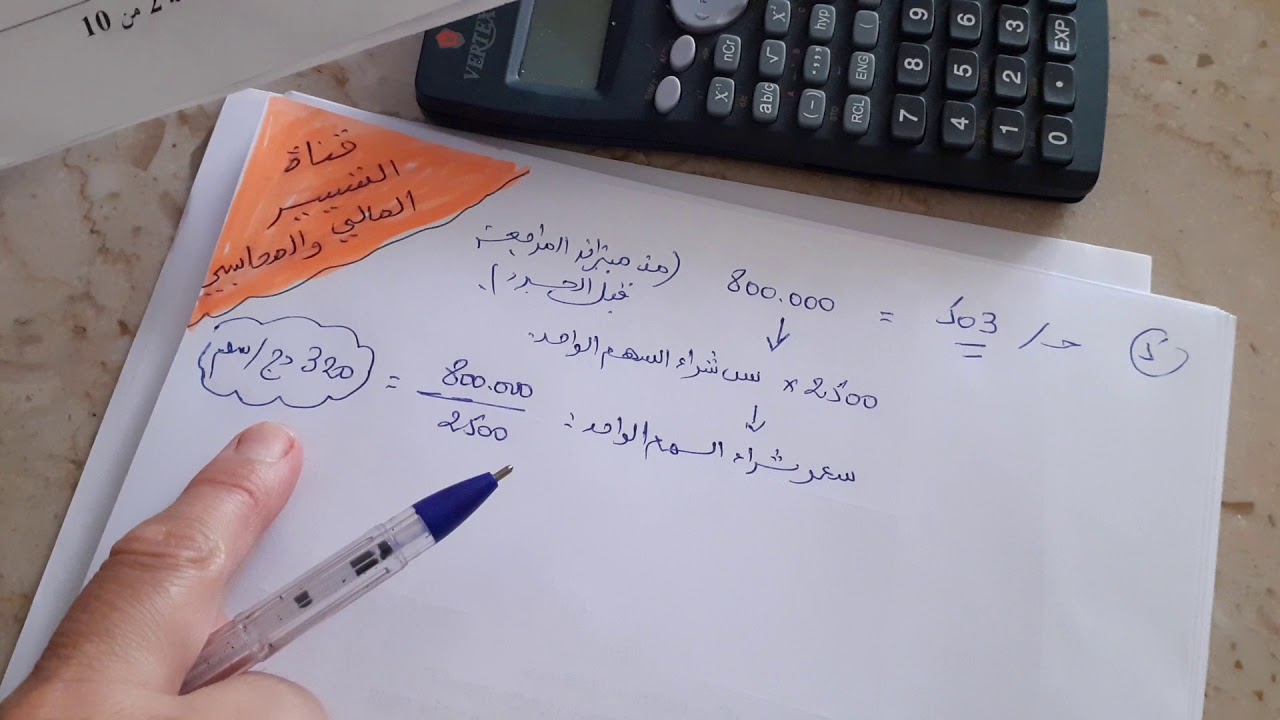 7 من 10
VERTEX
hyp ( 9 6 3 EXP
nCr √ °,,, ENG 8 5 2 •
X⁻¹ ab/c (-) RCL 7 4 1 0
قناة
التسيير
المالي والمحاسبي
5 حـ/ 503 = 800.000 (من ميزان المراجعة
قبل الجرد).
2500 × سعر شراء السهم الواحد.
سعر شراء السهم الواحد: 800.000 / 2500 = 320 دج/سهم